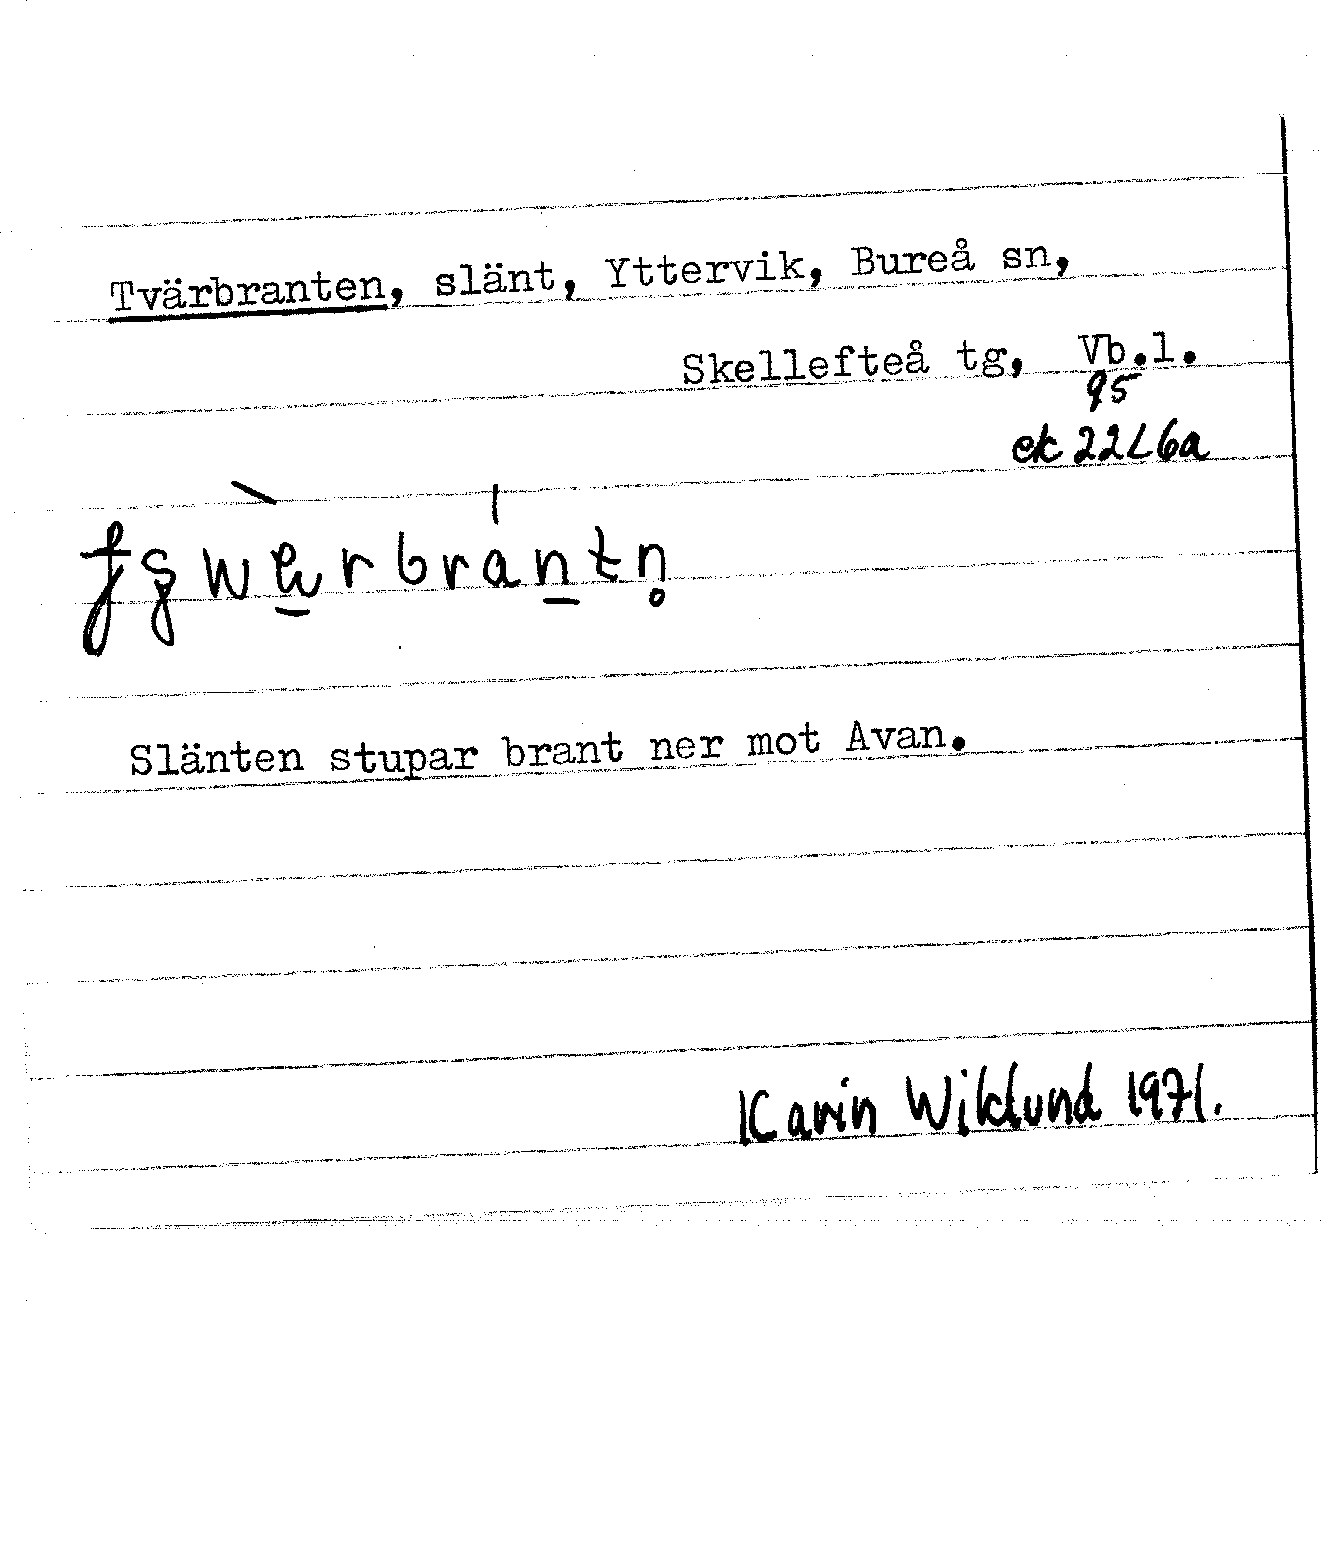 Tvärbranten, slänt, Yttervik, Bureå sn,
Skellefteå tg, Vb.l.
95
ek 22L6a
Slänten stupar brant ner mot Avan.
Karin Wiklund 1971.